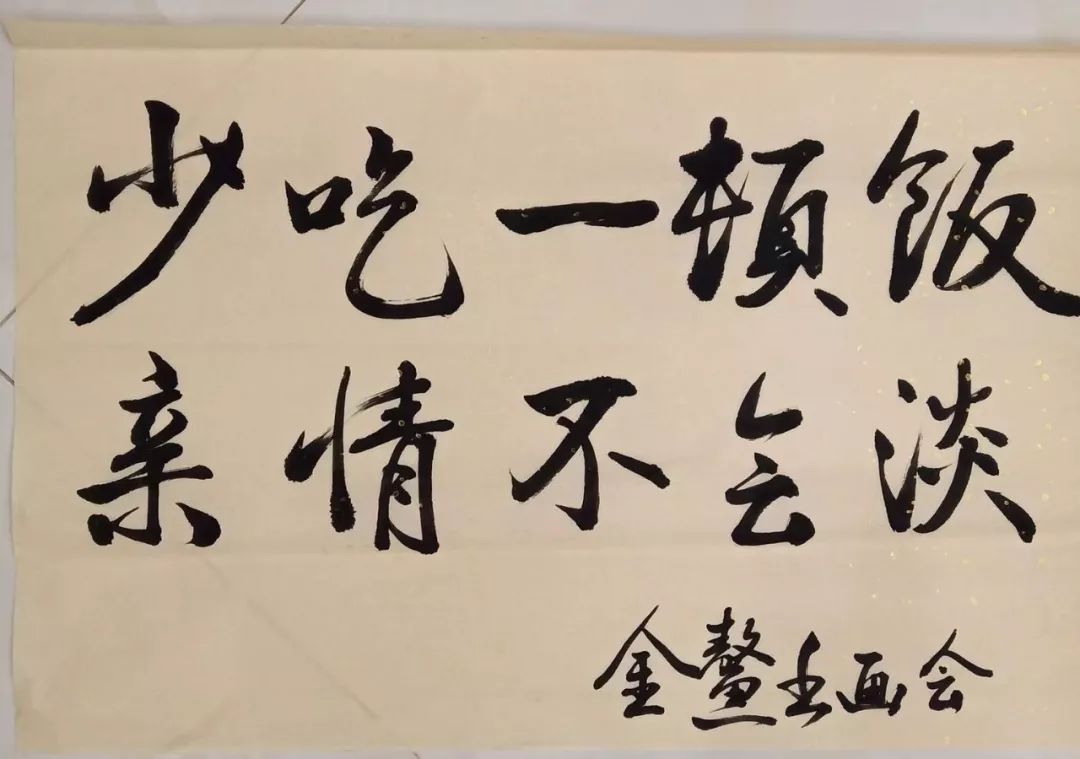 少吃一顿饭
亲情不会淡
金鳌书画会